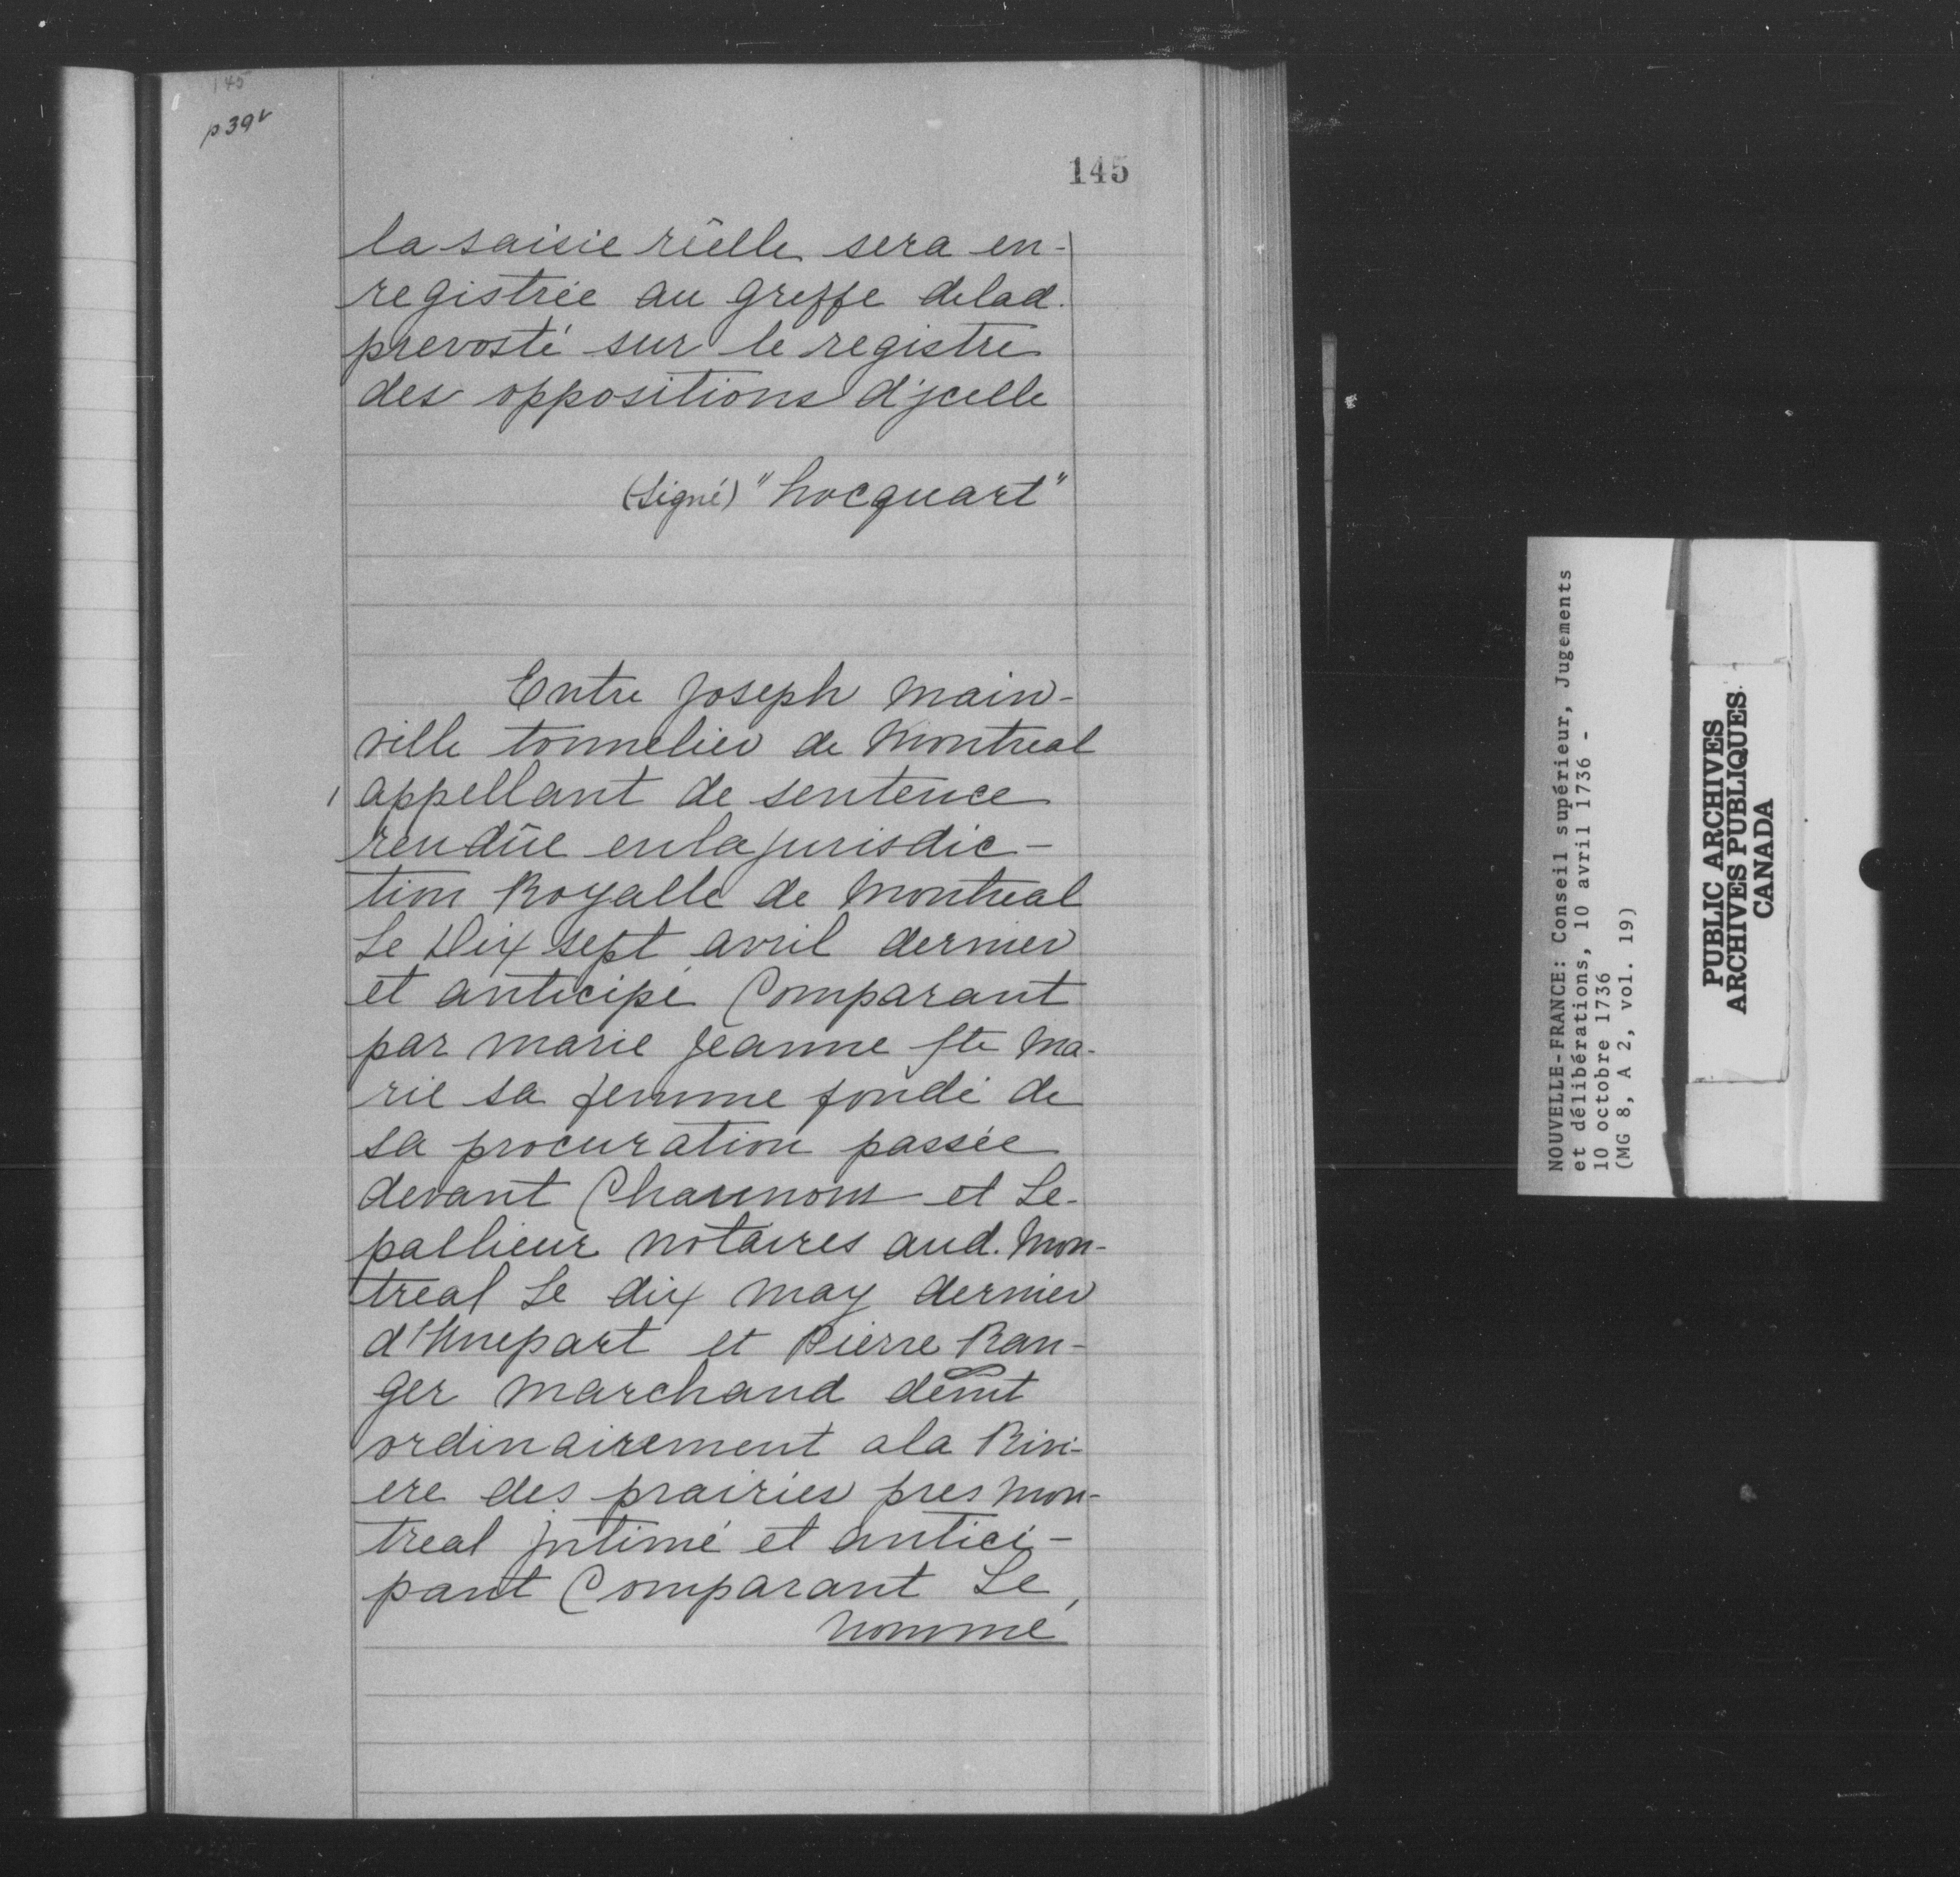 145
p 39v
145
la saisie réelle sera en-
registrée au greffe delad.
prevosté sur le registre
des oppositions d'jcelle
(signé) "hocquart"
Entre Joseph Main-
ville tonnelier de Montreal
appellant de sentence
rendûe enla jurisdic-
tion Royalle de Montreal
Le Dix sept avril dernier
et anticipé Comparant
par marie Jeanne Ste Ma-
rie sa femme fondé de
sa procuration passée
devant Chaumons et Le-
pallieur notaires aud. Mon-
treal Le dix may dernier
d'Unepart et Pierre Ran-
ger marchand demt
ordinairement ala Rivi-
ere des prairies pres Mon-
treal jntimé et antici-
pant Comparant Le
nommé
NOUVELLE-FRANCE: Conseil supérieur, Jugements
et délibérations, 10 avril 1736 -
10 octobre 1736
(MG 8, A 2, vol. 19)
PUBLIC ARCHIVES
ARCHIVES PUBLIQUES
CANADA